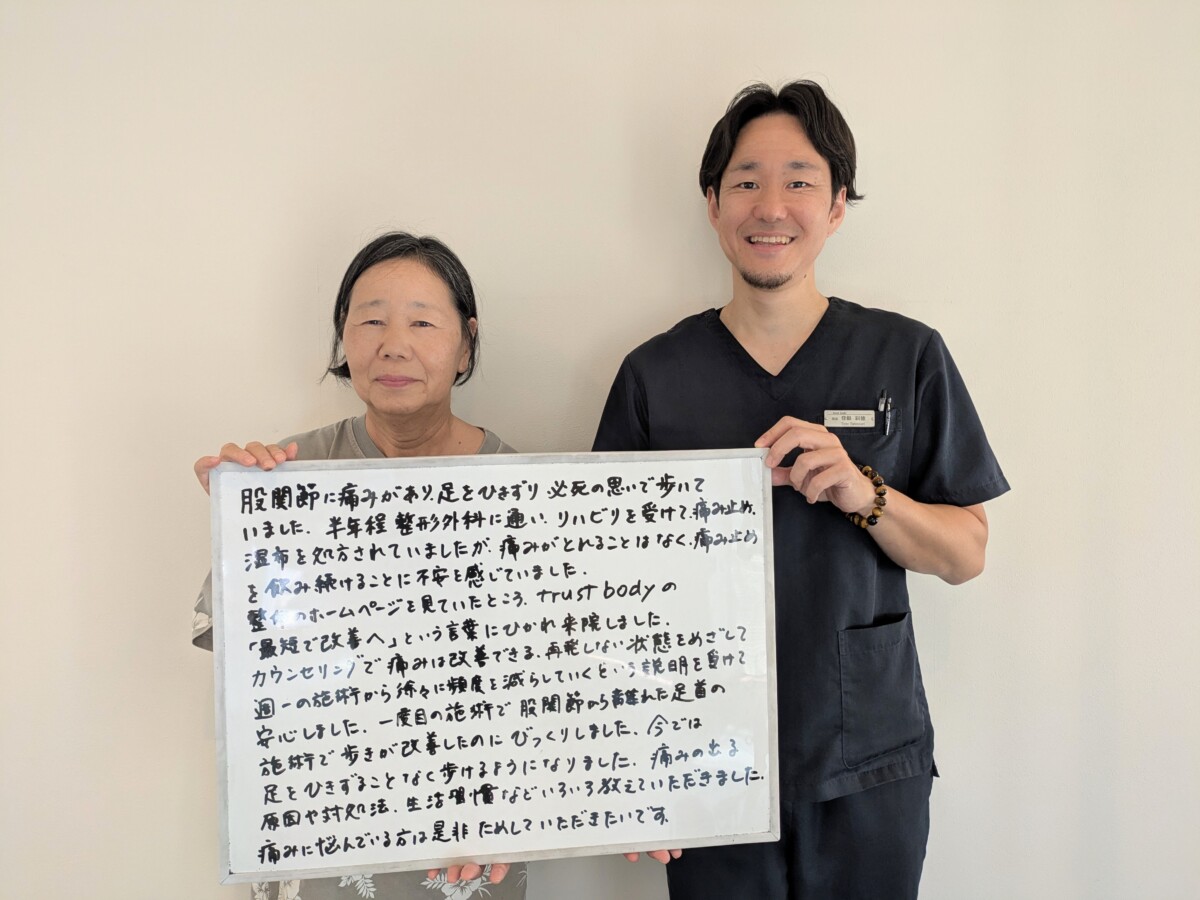 股関節に痛みがあり、足をひきずり、必死の思いで歩いて
いました。半年程 整形外科に通い、リハビリを受けて、痛み止め、
湿布を処方されていましたが、痛みがとれることはなく、痛み止め
を飲み続けることに不安を感じていました。
整体のホームページを見ていたところ、trust bodyの
「最短で改善へ」という言葉にひかれ来院しました。
カウンセリングで痛みは改善できる、再発しない状態をめざして
週一の施術から徐々に頻度を減らしていくという説明を受けて
安心しました。一度目の施術で股関節から離れた足首の
施術で歩きが改善したのにびっくりしました。今では
足をひきずることなく歩けるようになりました。痛みの出る
原因や対処法、生活習慣などいろいろ教えていただきました。
痛みに悩んでいる方は是非ためしていただきたいです。